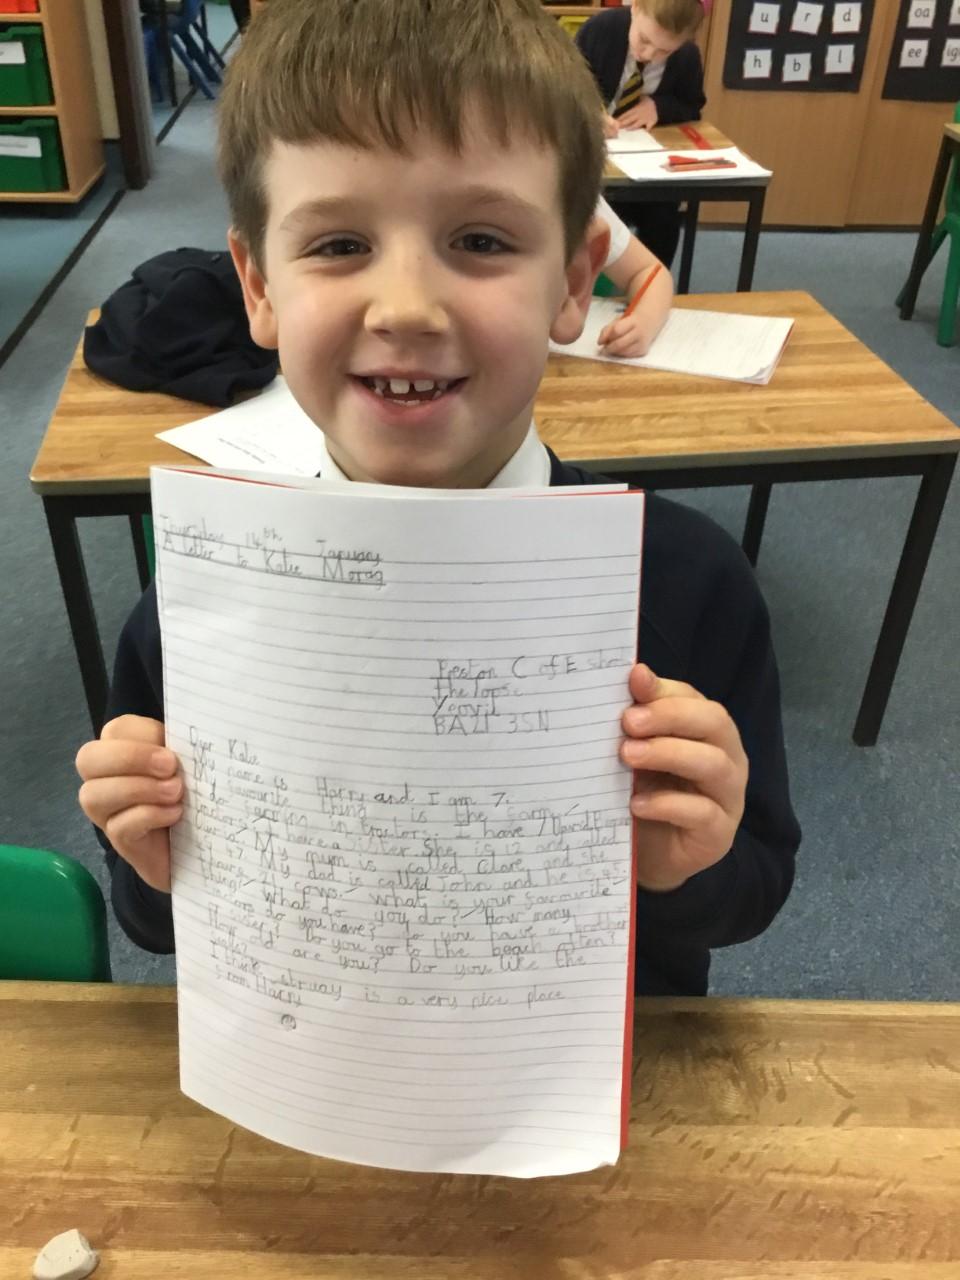 u r d
h b l
oa
ee igh
Thursday 14th January
A letter to Katie Morag
Preston C of E school
Yeovil
BA21 3SN
Dear Katie
My name is Harry and I am 7.
My favourite thing is the farm.
I do farming in tractors. I have 7 David Brown
tractors. I have a sister. She is 12 and called
My mum is called Clare and she
is 47. My dad is called John and he is 45.
I have 21 cows. What is your favourite
thing? What do you do? How many
tractors do you have? Do you have a brother
or sister? Do you go to the beach often?
How old are you? Do you like the
I think struay is a very nice place
from Harry